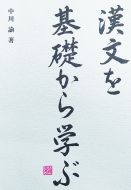 漢文を
基礎から学ぶ
中川 諭 著